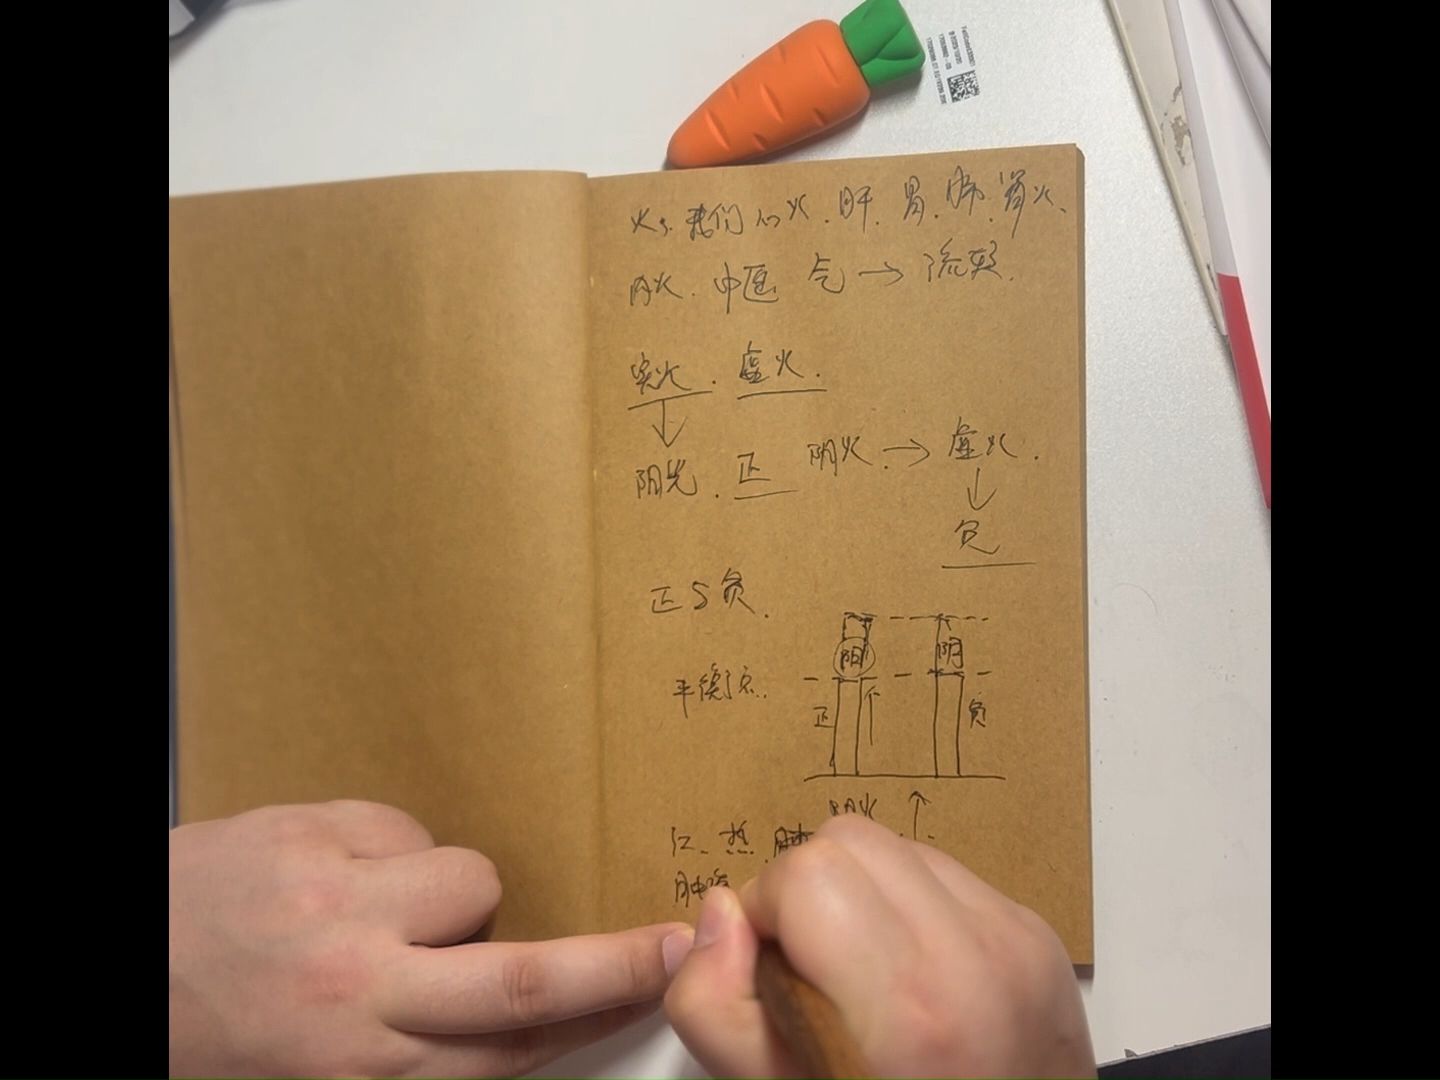 火、我们心火.肝.胃.肺.肾火、
中医 气→流
实火.虚火.
阳光.正 阴火→虚火.
负
正与负.
阳 阴
平衡点.
正 负
阴火 ↑
红、热.肿
肿